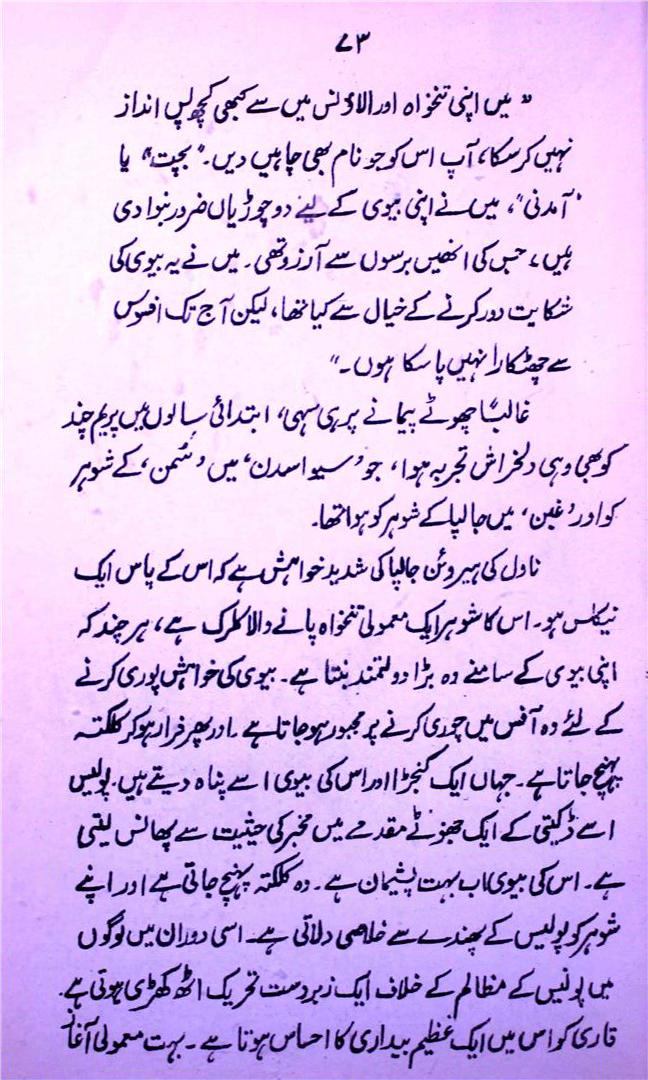 ۷۳
" میں اپنی تنخواہ اور الاؤنس میں سے کبھی کچھ پس انداز
نہیں کر سکا، آپ اس کو جو نام بھی چاہیں دیں۔ "بچت" یا
"آمدنی"، میں نے اپنی بیوی کے لیے دو چوڑیاں ضرور بنوا دی
ہیں، جس کی انھیں برسوں سے آرزو تھی۔ میں نے یہ بیوی کی
شکایت دور کرنے کے خیال سے کیا تھا، لیکن آج تک افسوس
سے چھٹکارا نہیں پا سکا ہوں۔"
غالباً چھوٹے پیمانے پر ہی سہی، ابتدائی سالوں میں پریم چند
کو بھی وہی دلخراش تجربہ ہوا، جو 'سیوا سدن' میں 'سُمن' کے شوہر
کو اور 'غبن' میں جالپا کے شوہر کو ہوا تھا۔
ناول کی ہیروئن جالپا کی شدید خواہش ہے کہ اس کے پاس ایک
نیکلس ہو۔ اس کا شوہر ایک معمولی تنخواہ پانے والا کلرک ہے، ہر چند کہ
اپنی بیوی کے سامنے وہ بڑا دولتمند بنتا ہے۔ بیوی کی خواہش پوری کرنے
کے لئے وہ آفس میں چوری کرنے پر مجبور ہو جاتا ہے۔ اور پھر فرار ہو کر کلکتہ
پہنچ جاتا ہے۔ جہاں ایک کنجڑا اور اس کی بیوی اسے پناہ دیتے ہیں۔ پولیس
اسے ڈکیتی کے ایک جھوٹے مقدمے میں مخبر کی حیثیت سے پھانس لیتی
ہے۔ اس کی بیوی اب بہت پشیمان ہے۔ وہ کلکتہ پہنچ جاتی ہے اور اپنے
شوہر کو پولیس کے پھندے سے خلاصی دلاتی ہے۔ اسی دوران میں لوگوں
میں پولیس کے مظالم کے خلاف ایک زبردست تحریک اٹھ کھڑی ہوتی ہے۔
قاری کو اس میں ایک عظیم بیداری کا احساس ہوتا ہے۔ بہت معمولی آغاز